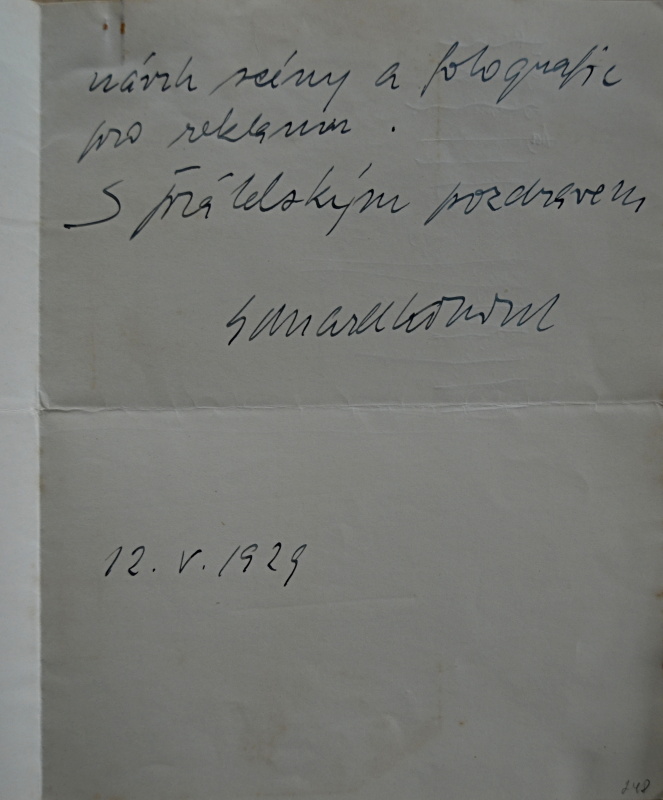 návrh scény a fotografie
pro reklamu.
S přátelským pozdravem
12. V. 1929
248